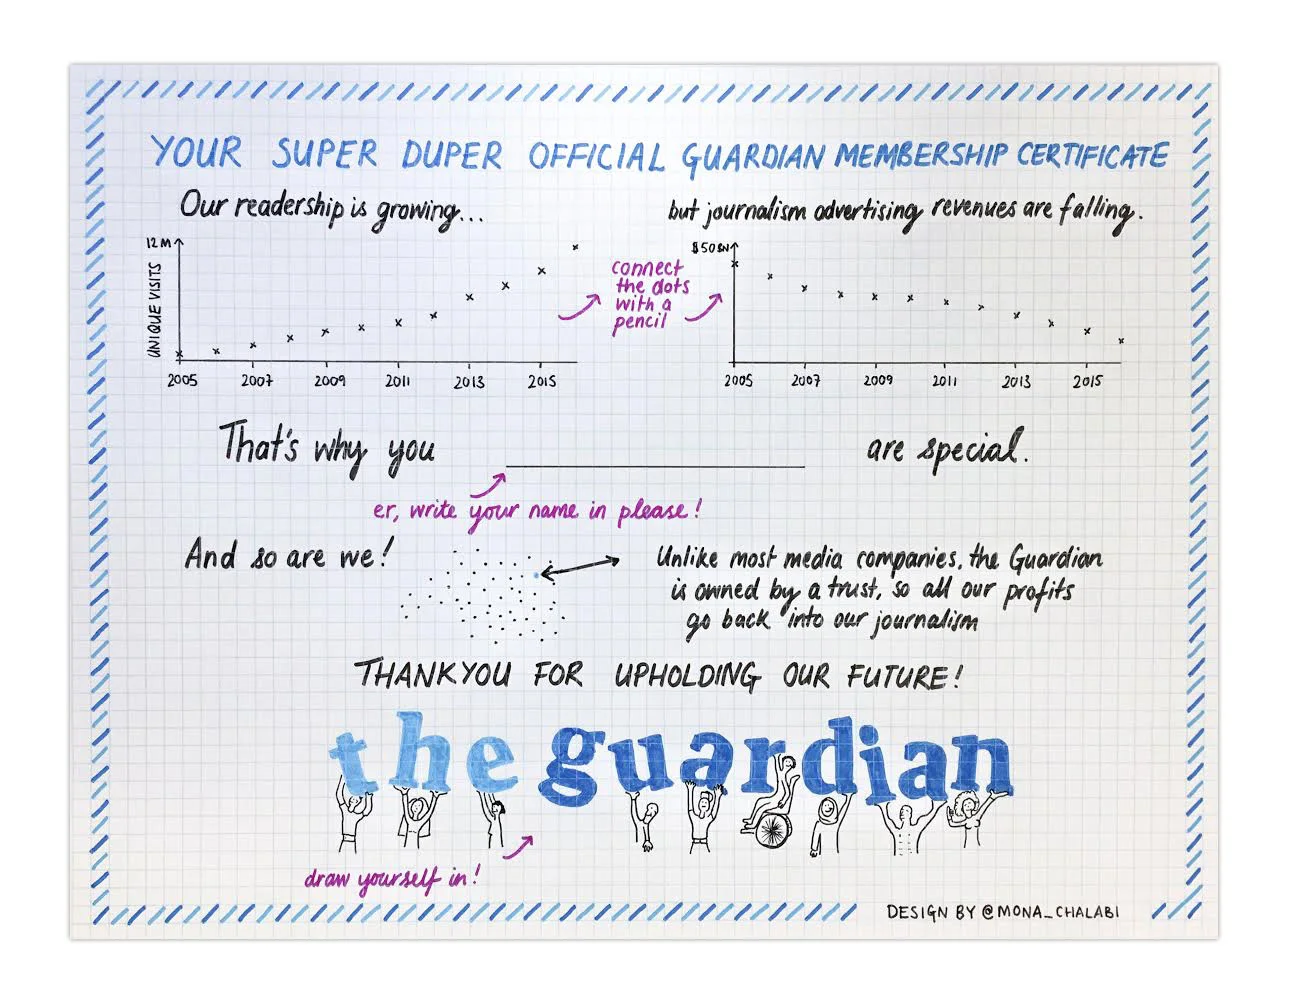 YOUR SUPER DUPER OFFICIAL GUARDIAN MEMBERSHIP CERTIFICATE
Our readership is growing...
12 M
UNIQUE VISITS
2005 2007 2009 2011 2013 2015
connect
the dots
with a
pencil
but journalism advertising revenues are falling.
$50BN
2005 2007 2009 2011 2013 2015
That's why you are special.
er, write your name in please!
And so are we!
Unlike most media companies, the Guardian
is owned by a trust, so all our profits
go back into our journalism
THANKYOU FOR UPHOLDING OUR FUTURE!
the guardian
draw yourself in!
DESIGN BY @MONA_CHALABI